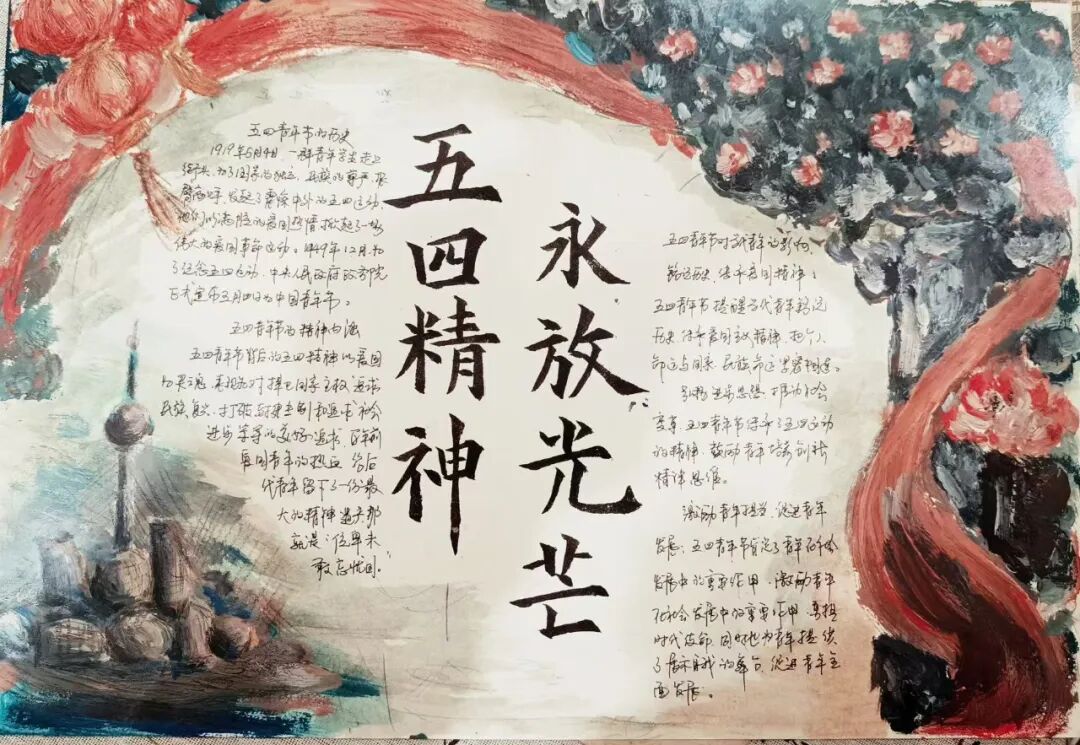 五四精神
永放光芒
五四青年节的历史
1919年5月4日,一群青年学生走上
街头,为了国家的独立,民族的尊严,振
臂高呼,发起了震惊中外的五四运动
他们以满腔的爱国热情掀起了一场
伟大的爱国革命运动。1949年12月,为
了纪念五四运动,中央人民政府政务院
正式宣布五月四日为中国青年节。
五四青年节的精神内涵
五四青年节背后的五四精神以爱国
为灵魂,表现为对捍卫国家主权,追求
民族复兴,打破封建专制和追求社会
进步等等的美好追求,百年前
爱国青年的热血给后
代青年留下了一份最
大的精神遗产那
就是:位卑未
敢忘忧国。
五四青年节对新青年的影响
铭记历史,传承爱国精神:
五四青年节提醒当代青年铭记
历史,传承爱国主义精神,把个人
命运与国家,民族命运紧密相连。
引领进步思想,推动社会
变革,五四青年节传承了五四运动
的精神,鼓励青年培养创新
精神思维。
激励青年担当,促进青年
发展:五四青年节肯定了青年在社会
发展中的重要作用,激励青年
在社会发展中的重要作用,勇担
时代使命,同时也为青年提供
了展示自我的舞台,促进青年全
面发展。